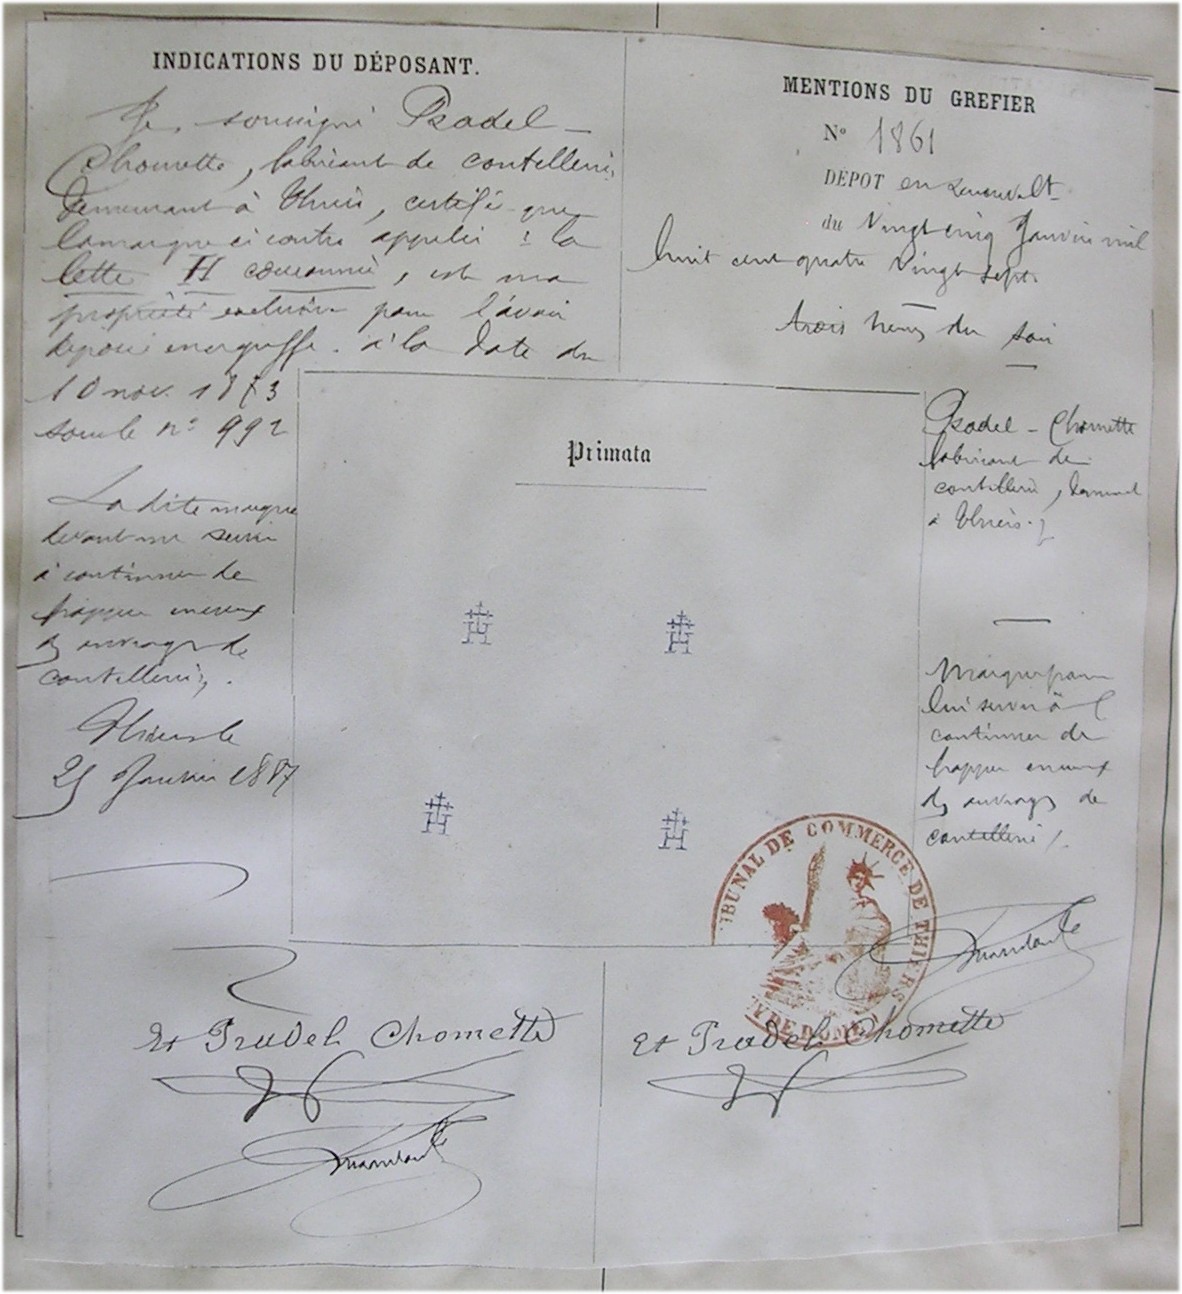 INDICATIONS DU DÉPOSANT.
Je, soussigné Pradel-
Chomette, fabricant de coutellerie,
demeurant à Thiers, certifie que
la marque ci contre appelée : la
lettre H couronnée, est ma
propriété exclusive pour l'avoir
déposée au greffe à la date du
10 nov. 1873
sous le n° 992
La dite marque
devant me servir
à continuer de
frapper
ouvrages de
coutellerie.
Thiers le
25 Janvier 1887
Et Pradel Chomette
MENTIONS DU GREFIER
N° 1861
DÉPOT en renouvelt
du Vingt cinq Janvier mil
huit cent quatre vingt sept.
trois heures du soir
Pradel-Chomette
fabricant de
coutellerie, demeurant
à Thiers.
Marque pour
lui servir à
continuer de
frapper
ouvrages de
coutellerie.
Et Pradel Chomette
Primata
H
H
H
H
TRIBUNAL DE COMMERCE DE THIERS
PUY DE DÔME